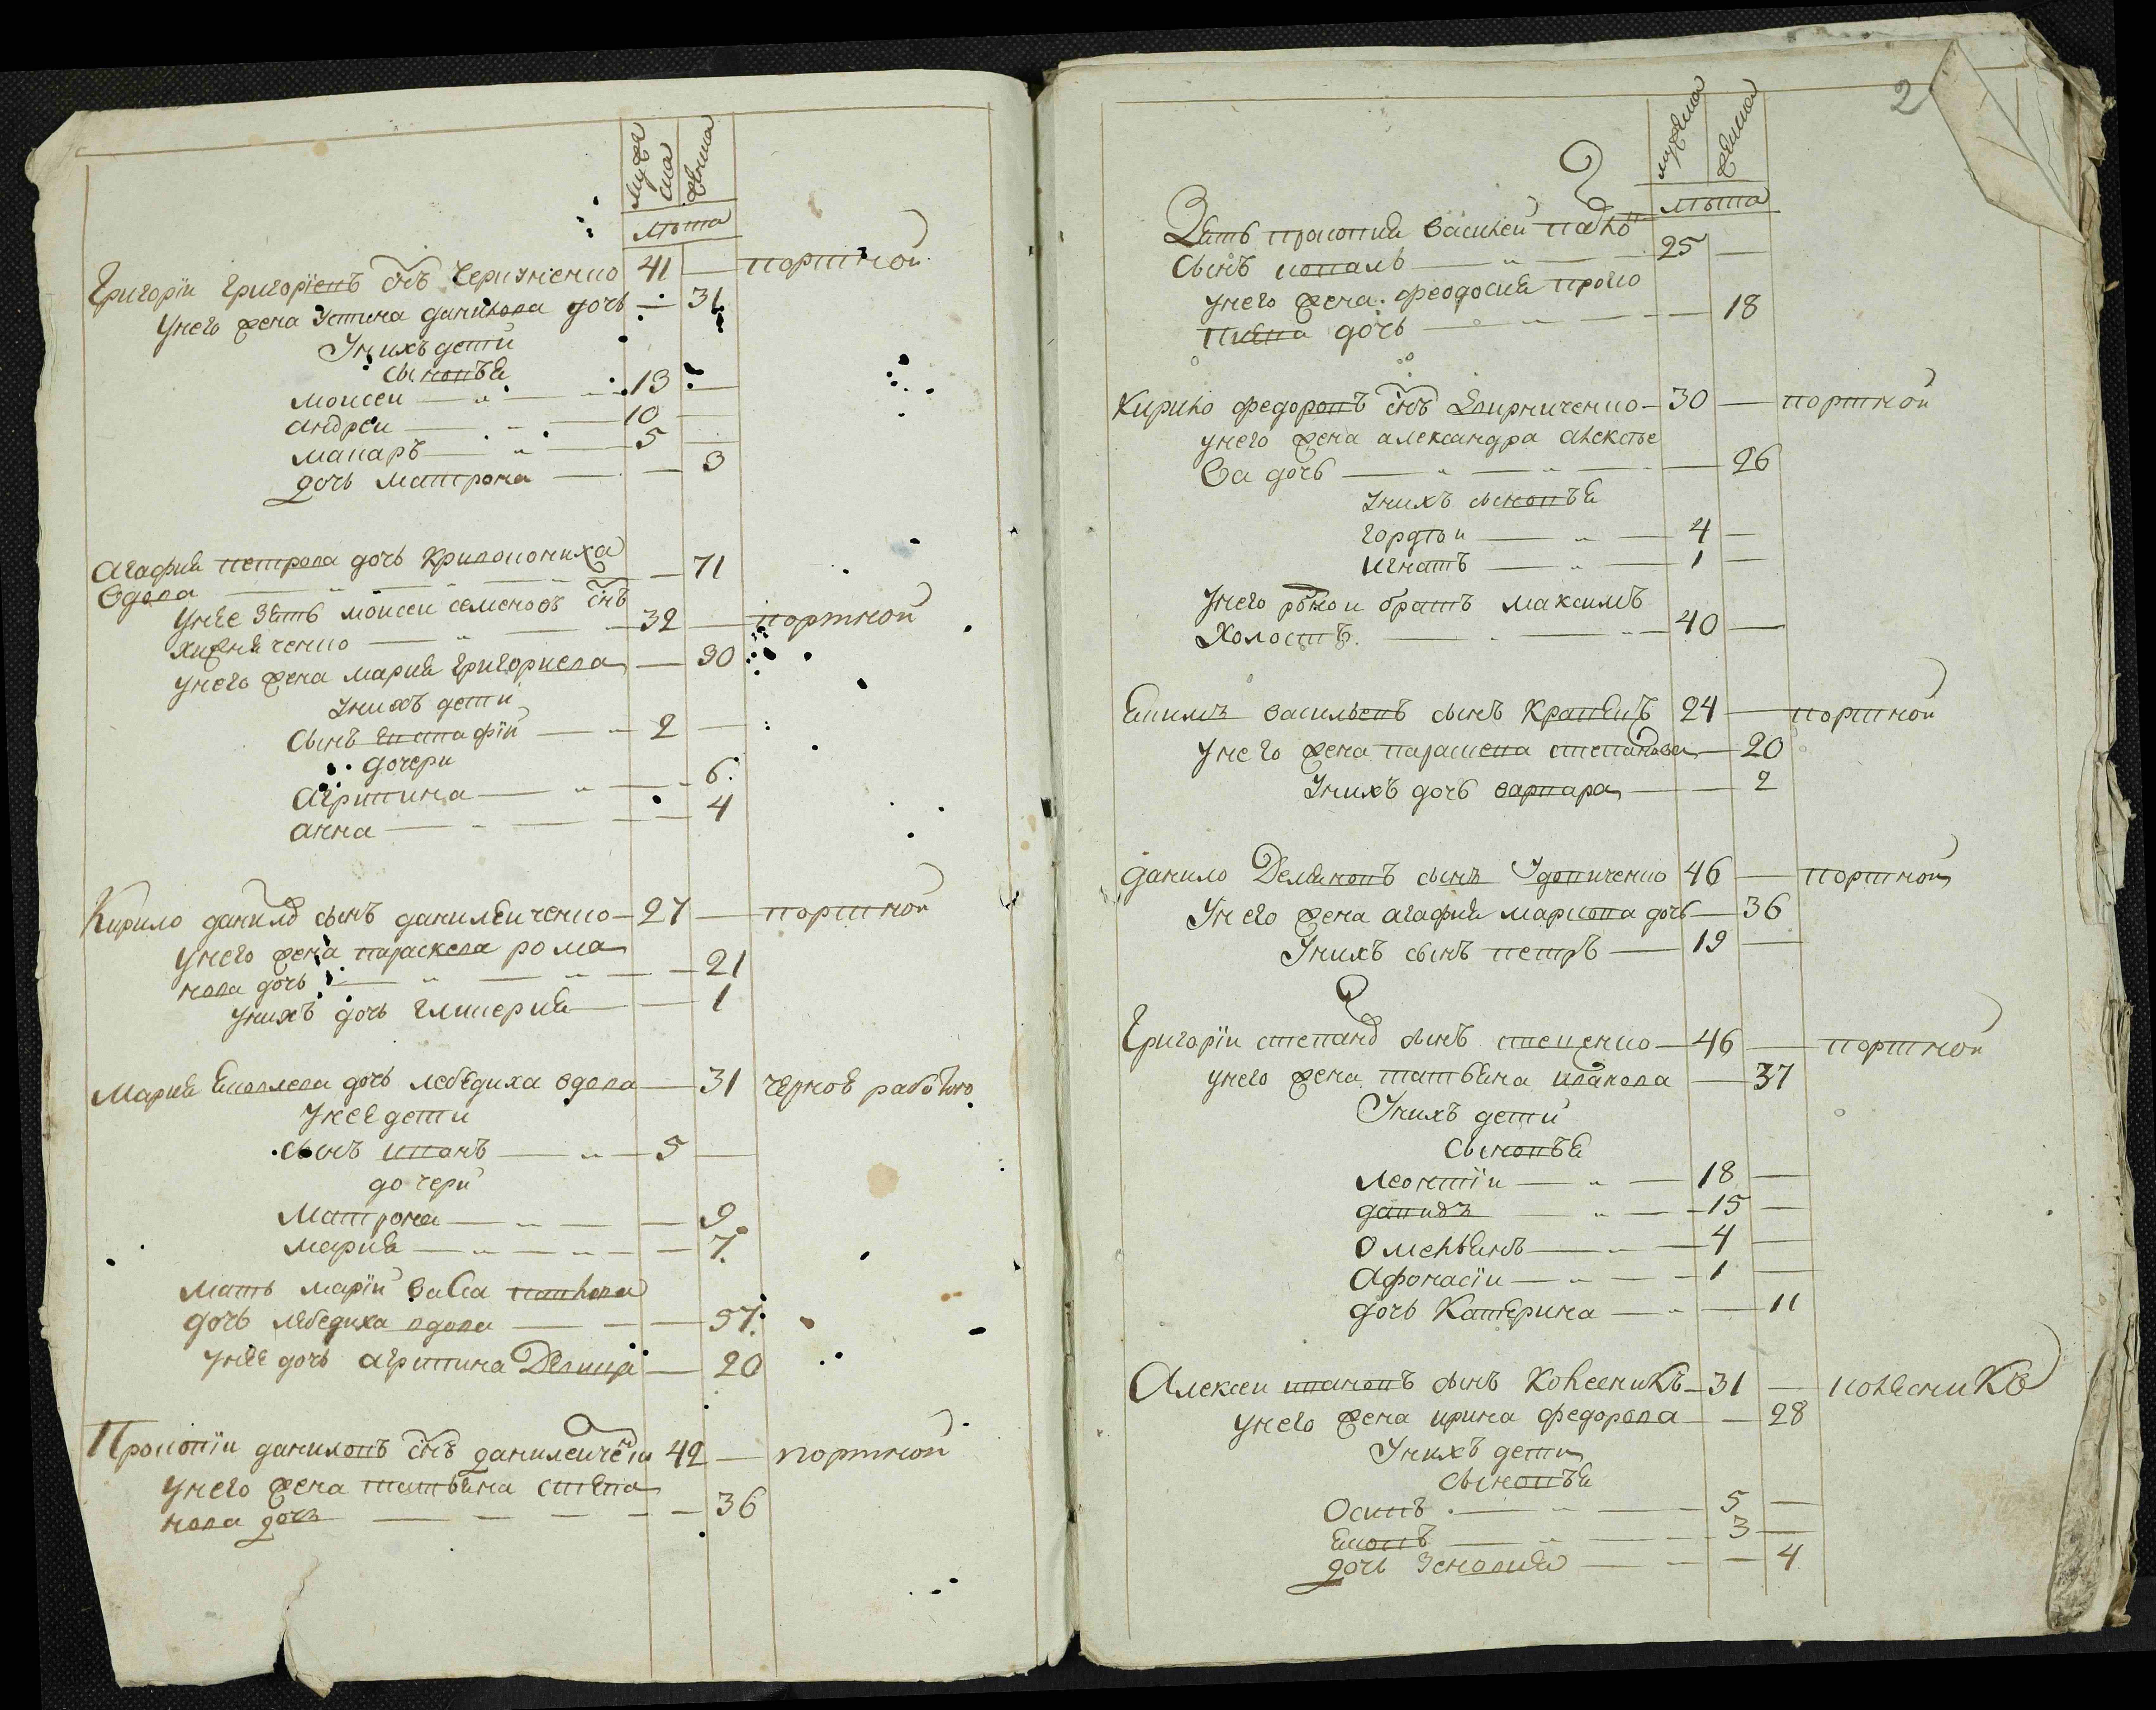 мужеска
женска
лѣта
Григорiи Григорiевъ сн҃ъ Черизненко 41 — портной
Унего жена Устина данилова дочь — 31
Унихъ дети
сыновъя
моисеи — 13 —
андреи — 10 —
макаръ — 5 —
дочь матрона — 3
Агафия петрова дочь Кривокониха
вдова — 71
унее зять моисеи семеновъ сн҃ъ
хижняченко — 32 — портной
унего жена мария григориева — 30
унихъ дети
сынъ евстафiй — 2 —
дочери
агрипина — 6
анна — 4
Кирило данило сынъ данилейченко — 27 — портной
унего жена параскева рома
нова дочь — 21
унихъ дочь гликерия — 1
Мария Яковлева дочь лебедиха вдова — 31 черноя работою
Унее дети
сынъ иванъ — 5 —
дочери
матрона — 9
мария — 7
мать марiи васса павлова
дочь лебедиха вдова — 57
унее дочь агрипина Девица — 20
Прокопiи даниловъ сн҃ъ данилейченко 42 — портной
унего жена татьяна степа
нова дочь — 36
2
мужеска
женска
лѣта
Зять прокопия василей павло
сынъ коваль — 25 —
унего жена феодосия проко
пиева дочь — 18
Кирило федоровъ сн҃ъ — 30 — портной
унего жена александра алексѣе
ва дочь — 26
унихъ сыновъя
гордѣи — 4 —
игнатъ — 1 —
Унего родной братъ максимъ
холостъ — 40 —
Якимъ васильевъ сынъ Кравецъ 24 — портной
унего жена парасцева степанова — 20
Унихъ дочь варвара — 2
данило Демяновъ сынъ Удовиченко 46 — портной
Унего жена агафия маркова дочь — 36
Унихъ сынъ петръ — 19 —
Григорiи степано сынъ стеценко — 46 — портной
унего жена татьяна иванова — 37
Унихъ дети
сыновъя
леонтiи — 18 —
давидъ — 15 —
Омельянъ — 4 —
Афонасiи — 1 —
дочь Катерина — 11
Алексеи ивановъ сынъ Колесникъ — 31 — колесникъ
унего жена ирина федорова — 28
Унихъ дети
сыновъя
Осипъ — 5 —
Яковъ — 3 —
дочь Зеновия — 4